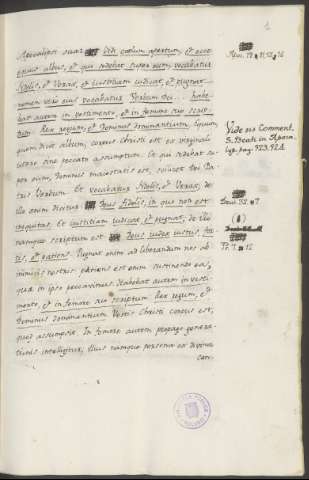 1
Apocalypsi suae Vidi coelum apertum, et ecce
equus albus, et qui sedebat super eum, vocabatur
Fidelis, et Verax, et iustitiam iudicat, et pugnat
nomen vero eius vocabatur Verbum Dei. habe-
bat autem in vestimento, et in femore suo scrip-
tum Rex regum, et Dominus dominantium. Equum
quem dixit album, corpus Christi est ex virginali
utero sine peccato assumptum. Et qui sedebat su-
per eum, Dominus maiestatis est, scilicet Dei Pa-
tris Verbum. Et vocabatur Fidelis, et Verax, de
illo enim dictum Deus fidelis, in quo non est
iniquitas. Et iustitiam iudicat, et pugnat, de illo
namque scriptum est Deus iudex iustus, for-
tis, et patiens. Pugnat enim ad liberandum nos ab
inimicis nostris: patiens est enim sustinendo eos,
qui in ipso peccavimus. Habebat autem in vesti-
mento, et in femore suo scriptum Rex regum, et
Dominus dominantium. Vestis Christi corpus est,
quod assumpsit. In femore autem propago genera-
tionis intelligitur, illius namque persona ex divina
Apoc. 19. 11. 13. 16
Vide eius Comment.
S. Beati in Apoca-
lyp. pag. 523. 524
Deut. 32. 4
Ps. 7. 12